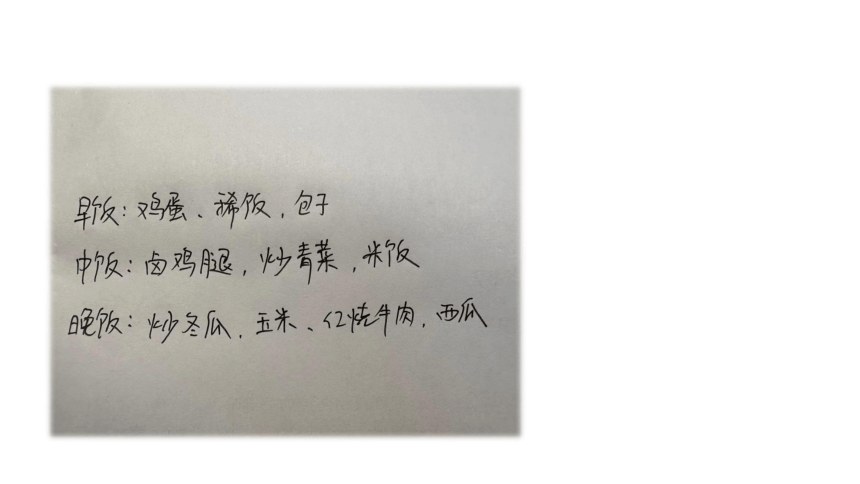 早饭：鸡蛋、稀饭，包子
中饭：卤鸡腿，炒青菜，米饭
晚饭：炒冬瓜，玉米、红烧牛肉，西瓜